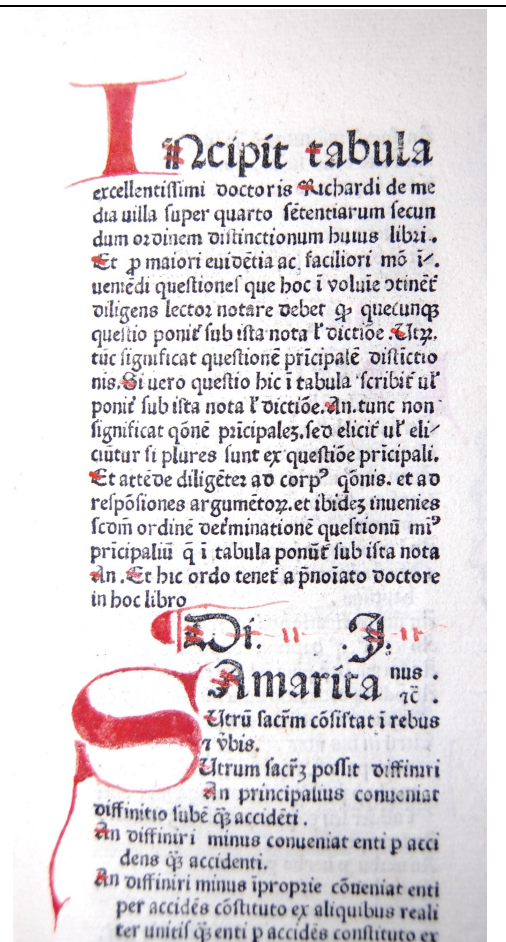 Incipit tabula
excellentissimi doctoris Richardi de me
dia uilla super quarto sētentiarum secun
dum ordinem distinctionum huius libri.
Et ꝑ maiori euidētia ac faciliori mō ī⸗.
ueniēdi questiones que hoc ī voluīe ɔtinēt̄
diligens lector notare debet ꝙ quecunqꝫ
questio ponit̄ sub ista nota ł dictiōe. Utꝝ.
tūc significat questionē pricipalē distictio
nis. Si uero questio hic ī tabula scribit̄ uł
ponit̄ sub ista nota ł dictiōe. An. tunc non
significat qōnē pricipaleꝫ. sed elicit̄ uł eli⸗
ciūtur si plures sunt ex questiōe pricipali.
Et attēde diligēteꝛ ad corpꝰ qōnis. et ad
respōsiones argumētoꝝ. et ibideꝫ inuenies
scdm̄ ordinē det̄minationē questionū miꝰ
pricipaliū q̄ ī tabula ponūt̄ sub ista nota
An. Et hic ordo tenet̄ a p̄noīato doctore
in hoc libro
Di. ıı. .I. ıı.
Samarita nus .
⁊c̄ .
Utrū sacr̄m cōsistat ī rebus
⁊ v̄bis.
Utrum sacr̄ꝫ possit diffiniri
An principalius conueniat
diffinitio subē qꝫ̄ accidēti.
An diffiniri minus conueniat enti p acci
dens qꝫ̄ accidenti.
An diffiniri minus īproprie cōueniat enti
per accidēs cōstituto ex aliquibus reali
ter unitis qꝫ̄ enti p accidēs constituto ex